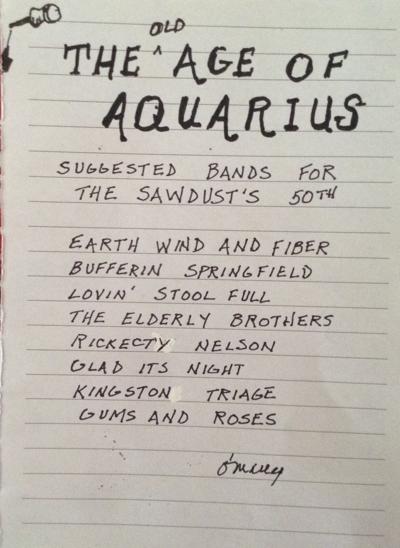 OLD
THE ^ AGE OF
AQUARIUS
SUGGESTED BANDS FOR
THE SAWDUST'S 50TH
EARTH WIND AND FIBER
BUFFERIN SPRINGFIELD
LOVIN' STOOL FULL
THE ELDERLY BROTHERS
RICKECTY NELSON
GLAD ITS NIGHT
KINGSTON TRIAGE
GUMS AND ROSES